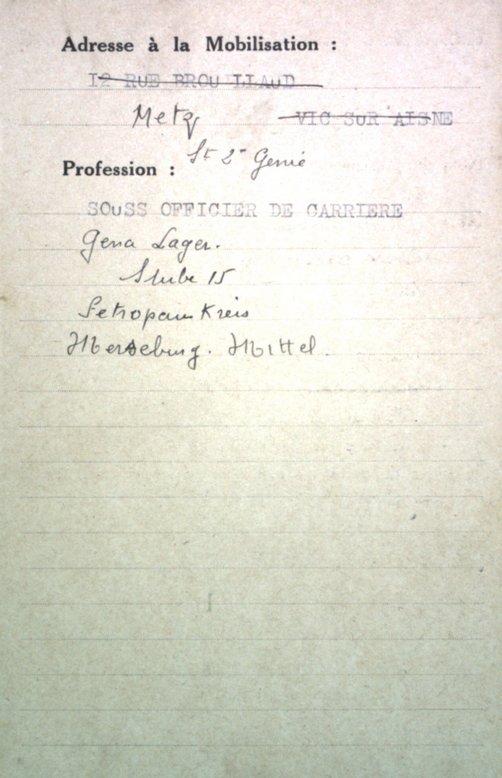 Adresse à la Mobilisation :
I2 RUE BROUILLAUD
Metz VIC SUR AISNE
St 2e Genie
Profession :
SOUSS OFFICIER DE CARRIERE
Gena Lager.
Stube 15
Kreis
Merseburg. Mittel